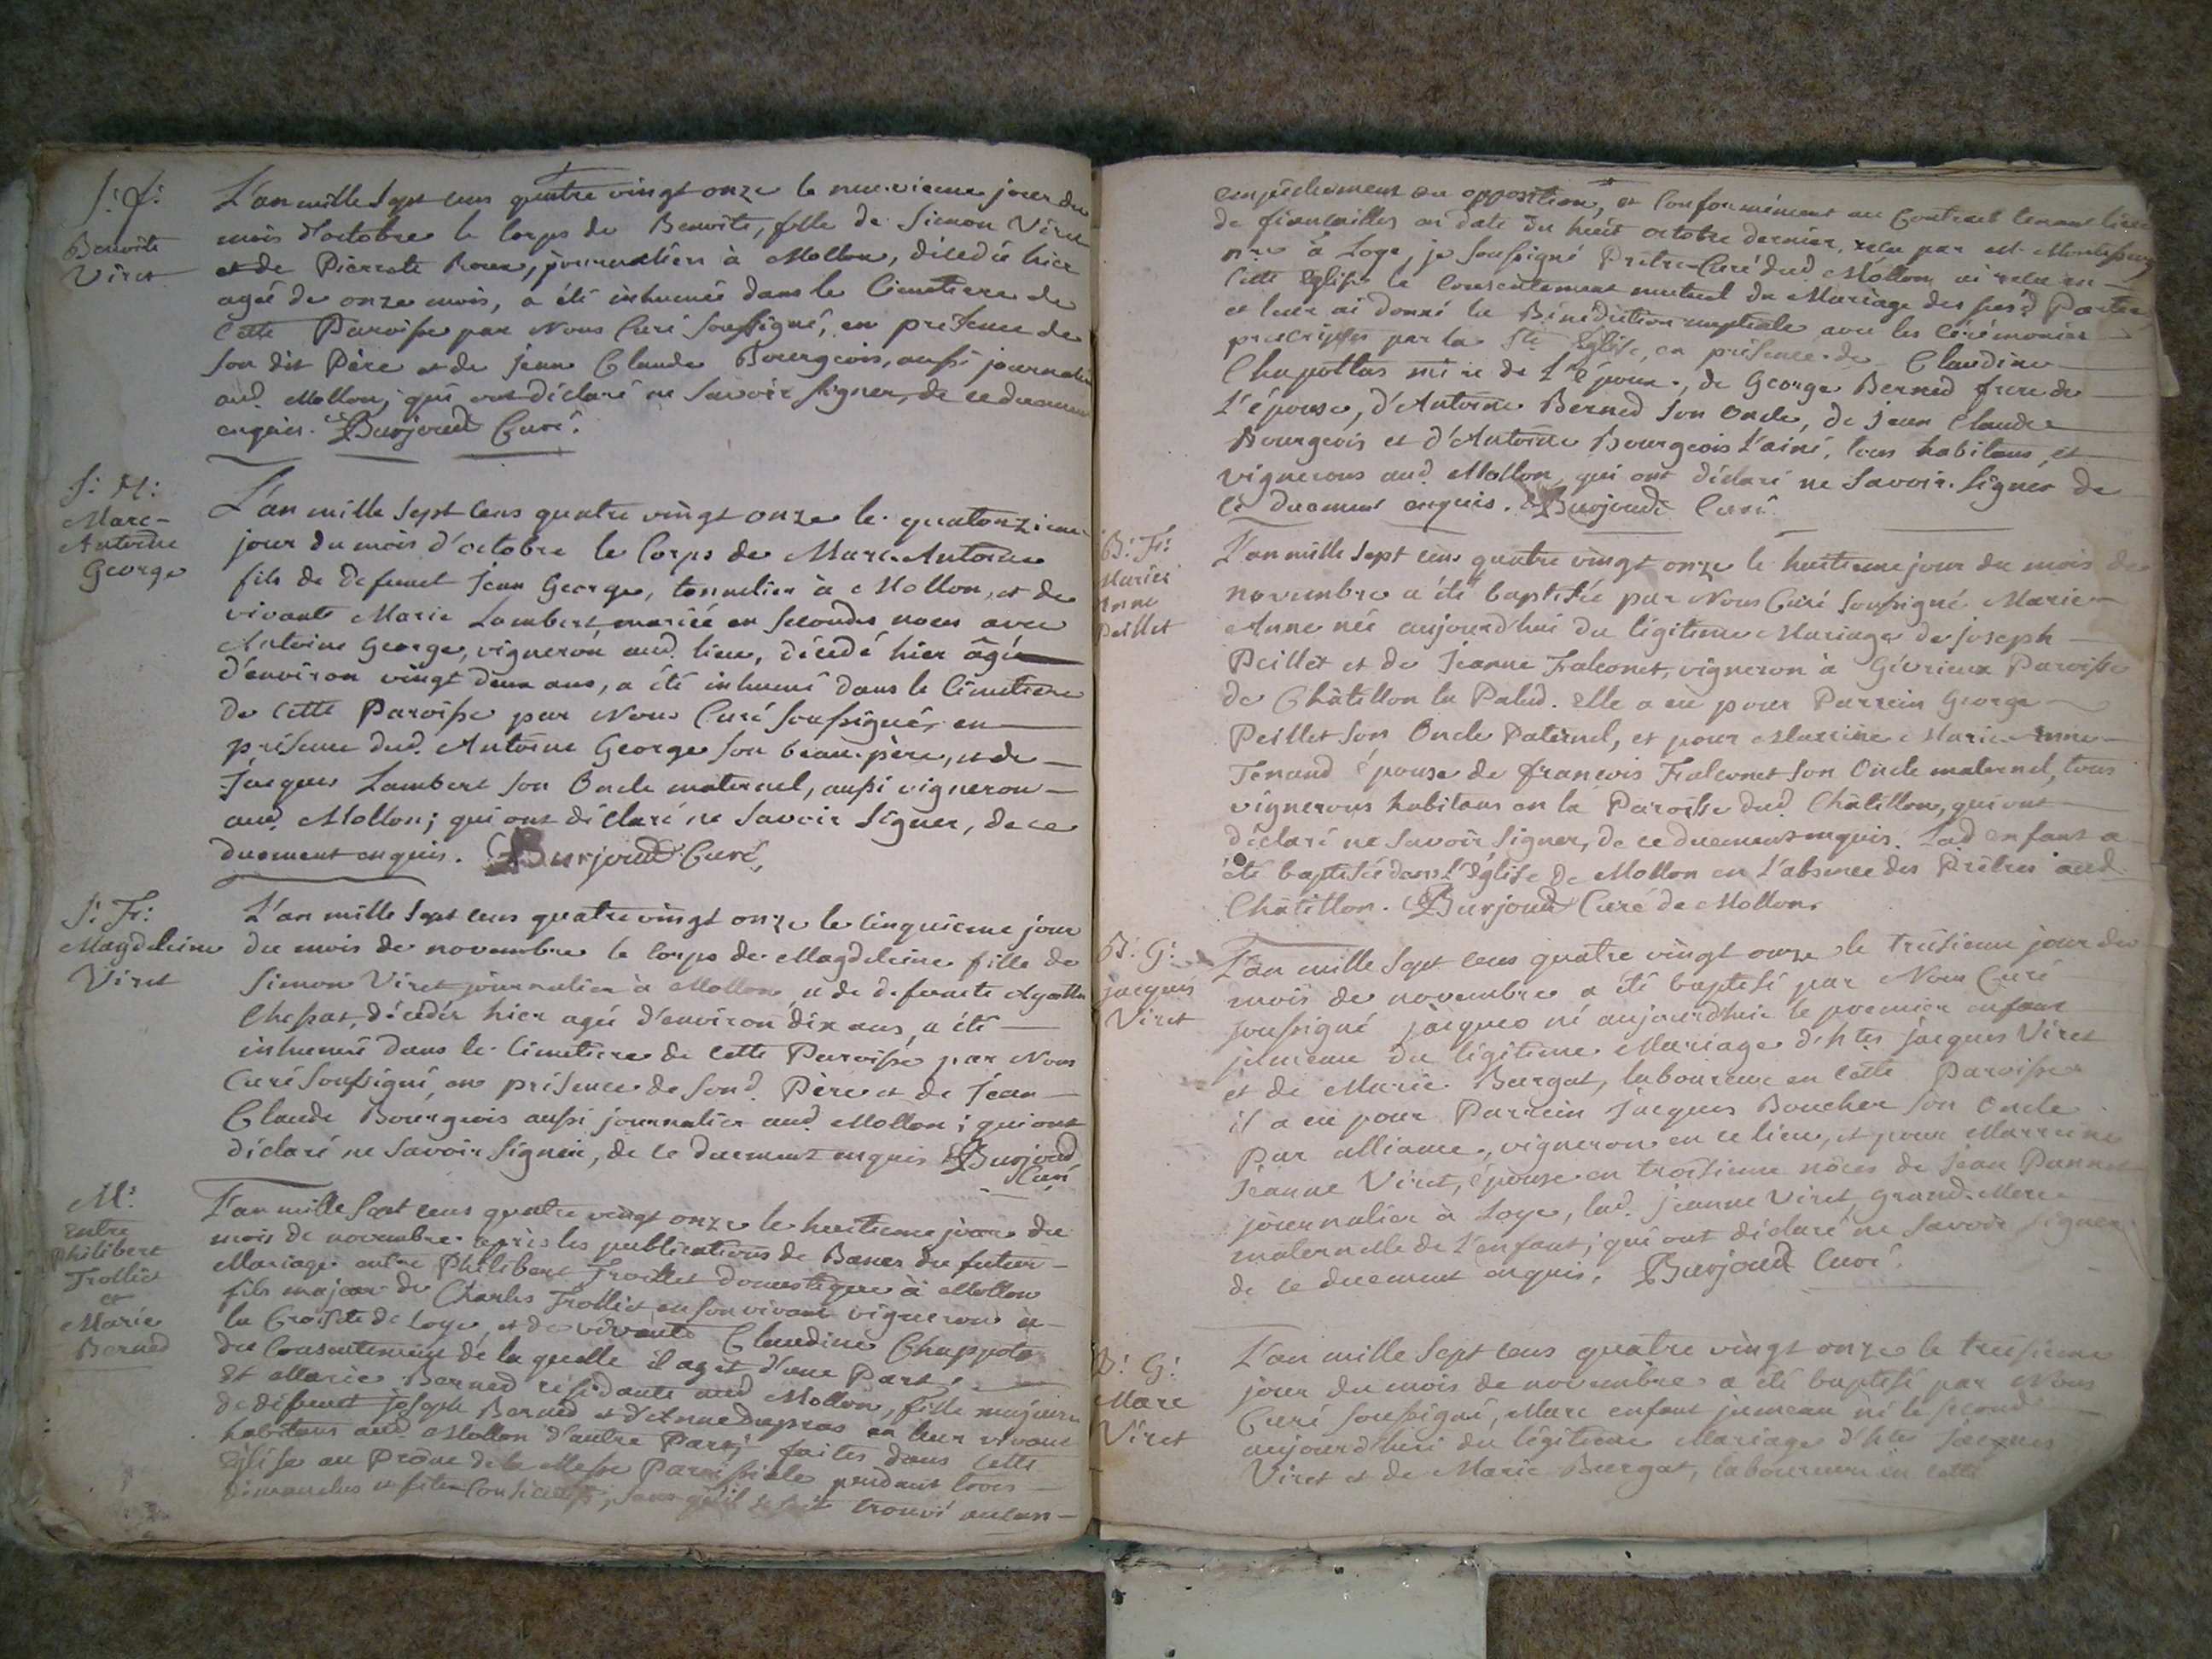 S: f:
Benoite
Viret
L'an mille sept cens quatre vingt onze le neuvieme jour du
mois d'octobre le Corps de Benoite, fille de Simon Viret
et de Pierrette Roux, journalier à Mollon, décédée hier
agée de onze mois, a été inhumée dans le Cimetiere de
Cette Paroisse par Nous Curé soussigné, en présence de
son dit Père et de jean Claude Bourgeois, aussi journalier
aud. Mollon, qui ont déclaré ne savoir signer, de ce duement
enquis. Burjoud Curé.
S: M:
Marc-
Antoine
George
L'an mille sept cens quatre vingt onze le quatorzieme
jour du mois d'octobre le Corps de Marc-Antoine
fils de defunct Jean George, tonnelier à Mollon, et de
vivante Marie Lambert mariée en secondes noces avec
Antoine George, vigneron aud. lieu, décédé hier âgé
d'environ vingt deux ans, a été inhumé dans le Cimetiere
de cette Paroisse par Nous Curé soussigné, en
présence dud. Antoine George son beau-père, et de
Jacques Lambert son Oncle maternel, aussi vigneron
aud. Mollon; qui ont déclaré ne savoir signer, de ce
duement enquis. Burjoud Curé,
S: Fr:
Magdeleine
Viret
L'an mille sept cens quatre vingt onze le cinquieme jour
du mois de novembre le corps de Magdeleine fille de
Simon Viret journalier à Mollon, et de defuncte Agathe
Chessat, décédée hier agée d'environ dix ans, a été
inhumée dans le Cimetiere de cette Paroisse par Nous
Curé soussigné, en présence de sond. Père et de Jean
Claude Bourgeois aussi journalier aud. Mollon; qui ont
déclaré ne savoir signer, de ce duement enquis Burjoud
Curé
M:
Entre
Philibert
Trolliet
et
Marie
Bernud
L'an mille sept cens quatre vingt onze le huitieme jour du
mois de novembre après les publications de Bancs du futur
Mariage entre Philibert Trolliet domestique à Mollon
fils majeur de Charles Trolliet en son vivant vigneron à
la Croisete de Loye, et de vivante Claudine Chappotas
du Consentement de laquelle il agit d'une Part;
Et Marie Bernud résidante aud. Mollon, fille majeure
de defunct joseph Bernud et d'Anne Dupras en leur vivant
habitans aud. Mollon d'autre Part; faites dans cette
Eglise au Prône de la Messe Paroissiale pendant trois
dimanches et fêtes consécutifs, sans qu'il se soit trouvé aucun
empêchement ou opposition, et Conformément au Contract tenant lieu
de fiancailles en date du huit octobre dernier, reçu par M.
nre à Loye, je soussigné Prêtre-Curé dud. Mollon ai reçu en
Cette Eglise le Consentement mutuel du Mariage des susd. Parties
et leur ai donné la Bénédiction nuptiale avec les cérémonies
prescriptes par la Ste Eglise, en présence de Claudine
Chapottas mère de L'époux, de George Bernud frere de
L'épouse, d'Antoine Bernud son Oncle, de jean Claude
Bourgeois et d'Antoine Bourgeois L'ainé, tous habitans et
vignerons aud. Mollon, qui ont déclaré ne savoir signer de
Ce duement enquis. Burjoud Curé
B: Fr:
Marie
Anne
Peillet
L'an mille sept cens quatre vingt onze le huitieme jour du mois de
novembre a été baptisée par Nous Curé soussigné Marie-
Anne née aujourd'hui du légitime Mariage de joseph
Peillet et de Jeanne Falconet, vigneron à Gévrieux Paroisse
de Châtillon la Palud. Elle a eu pour Parrein George
Peillet son Oncle Paternel, et pour Marreine Marie-Anne
Tenand épouse de francois Falconet son Oncle maternel, tous
vignerons habitans en la Paroisse dud. Châtillon, qui ont
déclaré ne savoir signer, de ce duement enquis. Lad. enfant a
été baptisée dans L'église de Mollon en L'absence des Prêtres aud.
Châtillon. Burjoud Curé de Mollon.
B: G:
jacques
Viret
L'an mille sept cens quatre vingt onze le treisieme jour du
mois de novembre a été baptisé par Nous Curé
soussigné jacques né aujourd'hui le premier enfant
jumeau du légitime Mariage d'htes jacques Viret
et de Marie Burgat, laboureur en cette Paroisse
il a eu pour Parrein Jacques Boucher son Oncle
Par alliance, vigneron en ce lieu, et pour Marreine
Jeanne Viret, épouse en troisieme nôces de Jean Pannet
journalier à Loye, lad. jeanne Viret Grand-Mere
maternelle de L'enfant; qui ont déclaré ne savoir signer
de ce duement enquis. Burjoud Curé.
B: G:
Marc
Viret
L'an mille sept cens quatre vingt onze le treisieme
jour du mois de novembre a été baptisé par Nous
Curé soussigné, Marc enfant jumeau né le second
aujourd'hui du légitime Mariage d'htes Jacques
Viret et de Marie Burgat, laboureur en cette